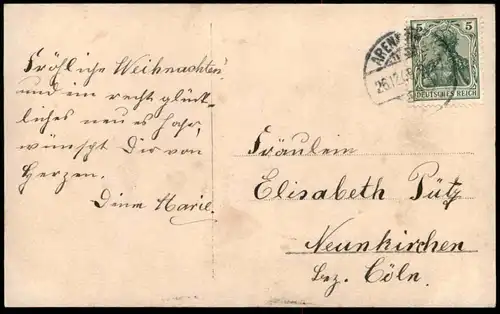 Fröhliche Weihnachten!
und ein recht glück-
liches neues Jahr,
wünscht Dir von
Herzen.
Deine Marie.
5 5
DEUTSCHES REICH
Fräulein
Elisabeth Pütz
Neunkirchen
Bez. Cöln.